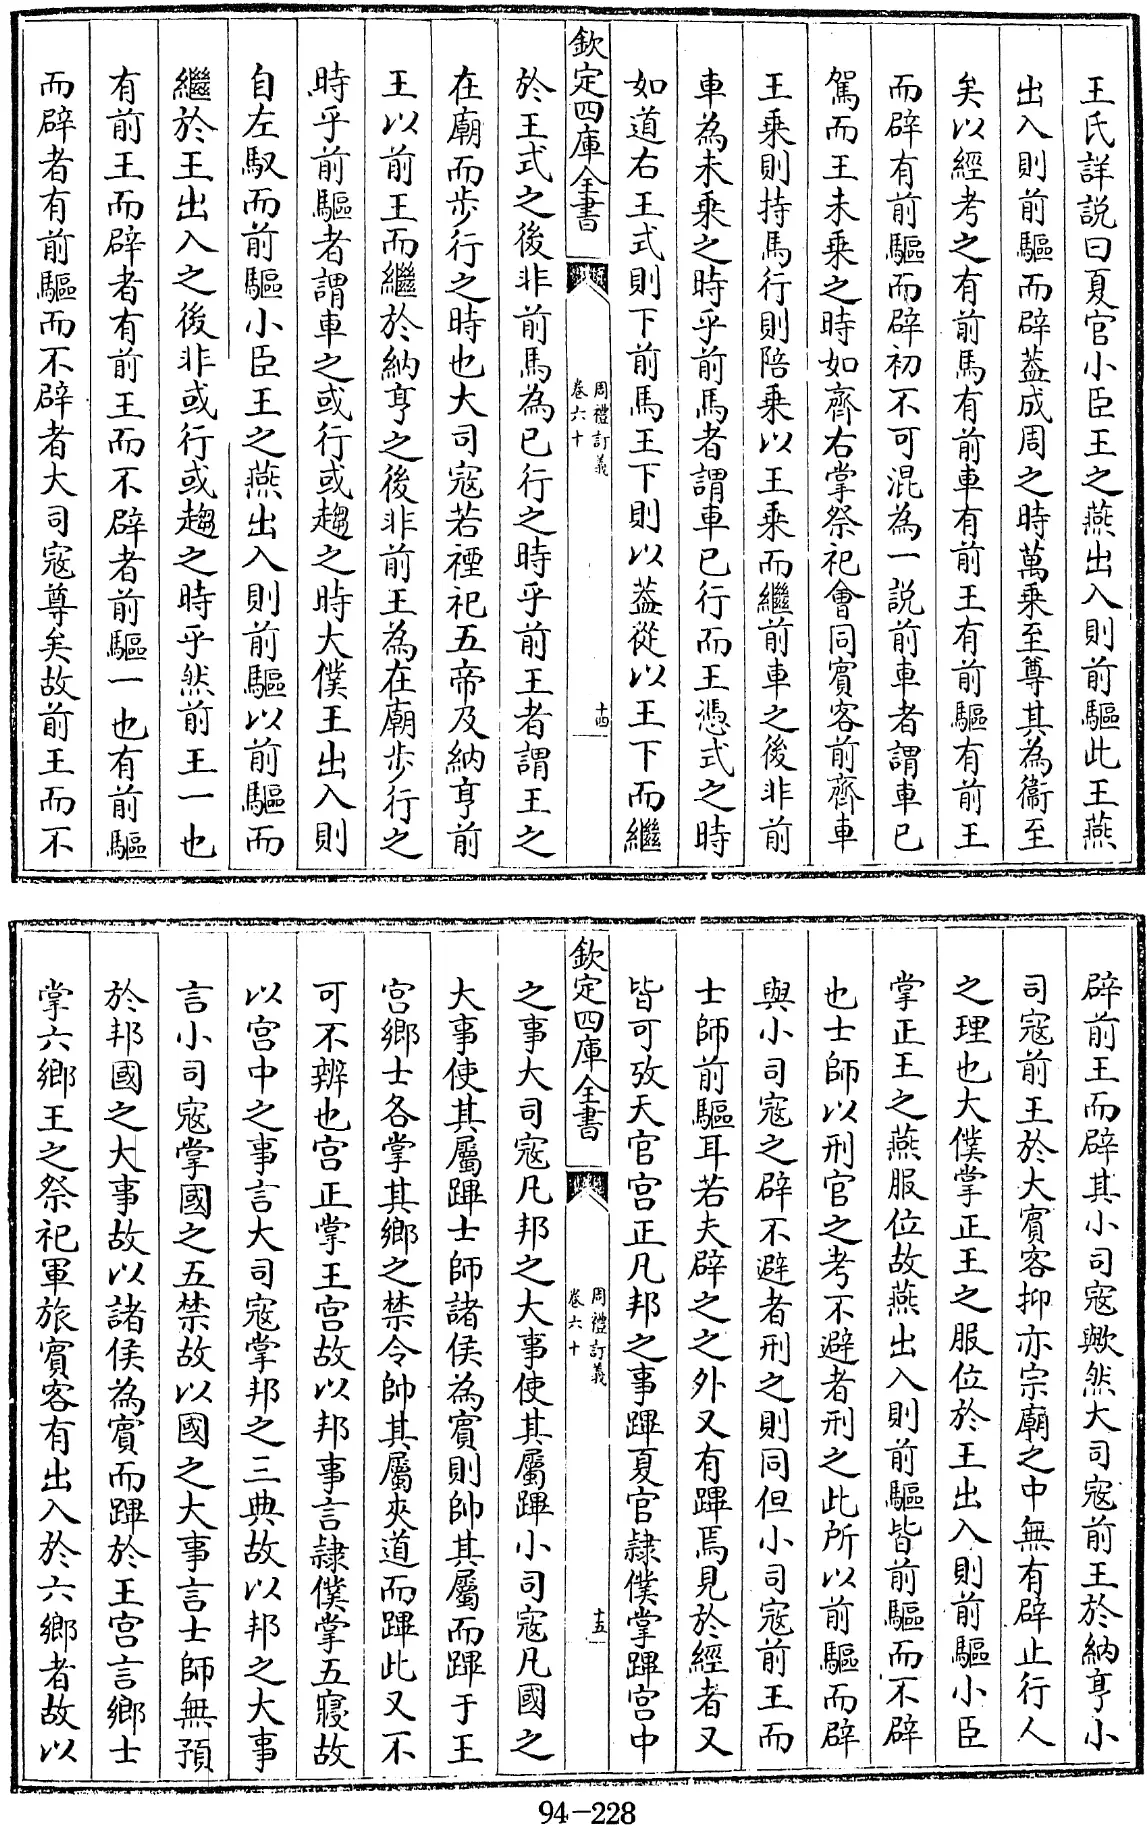 王氏詳説曰夏官小臣王之燕出入則前驅此王燕
出入則前驅而辟葢成周之時萬乗至尊其為衞至
矣以經考之有前馬有前車有前王有前驅有前王
而辟有前驅而辟初不可混為一説前車者謂車已
駕而王未乗之時如齊右掌祭祀會同賓客前齊車
王乗則持馬行則陪乗以王乗而繼前車之後非前
車為未乗之時乎前馬者謂車已行而王憑式之時
如道右王式則下前馬王下則以葢從以王下而繼
欽定四庫全書
周禮訂義
卷六十
十四
於王式之後非前馬為已行之時乎前王者謂王之
在廟而步行之時也大司寇若禋祀五帝及納亨前
王以前王而繼於納亨之後非前王為在廟步行之
時乎前驅者謂車之或行或趨之時大僕王出入則
自左馭而前驅小臣王之燕出入則前驅以前驅而
繼於王出入之後非或行或趨之時乎然前王一也
有前王而辟者有前王而不辟者前驅一也有前驅
而辟者有前驅而不辟者大司寇尊矣故前王而不
辟前王而辟其小司寇歟然大司寇前王於納亨小
司寇前王於大賓客抑亦宗廟之中無有辟止行人
之理也大僕掌正王之服位於王出入則前驅小臣
掌正王之燕服位故燕出入則前驅皆前驅而不辟
也士師以刑官之考不避者刑之此所以前驅而辟
與小司寇之辟不避者刑之則同但小司寇前王而
士師前驅耳若夫辟之之外又有蹕焉見於經者又
皆可攷天官宫正凡邦之事蹕夏官隷僕掌蹕宫中
欽定四庫全書
周禮訂義
卷六十
十五
之事大司寇凡邦之大事使其屬蹕小司寇凡國之
大事使其屬蹕士師諸侯為賓則帥其屬而蹕于王
宫鄉士各掌其鄉之禁令帥其屬夾道而蹕此又不
可不辨也宫正掌王宫故以邦事言隷僕掌五寢故
以宫中之事言大司寇掌邦之三典故以邦之大事
言小司寇掌國之五禁故以國之大事言士師無預
於邦國之大事故以諸侯為賓而蹕於王宫言鄉士
掌六鄉王之祭祀軍旅賓客有出入於六鄉者故以
94-228